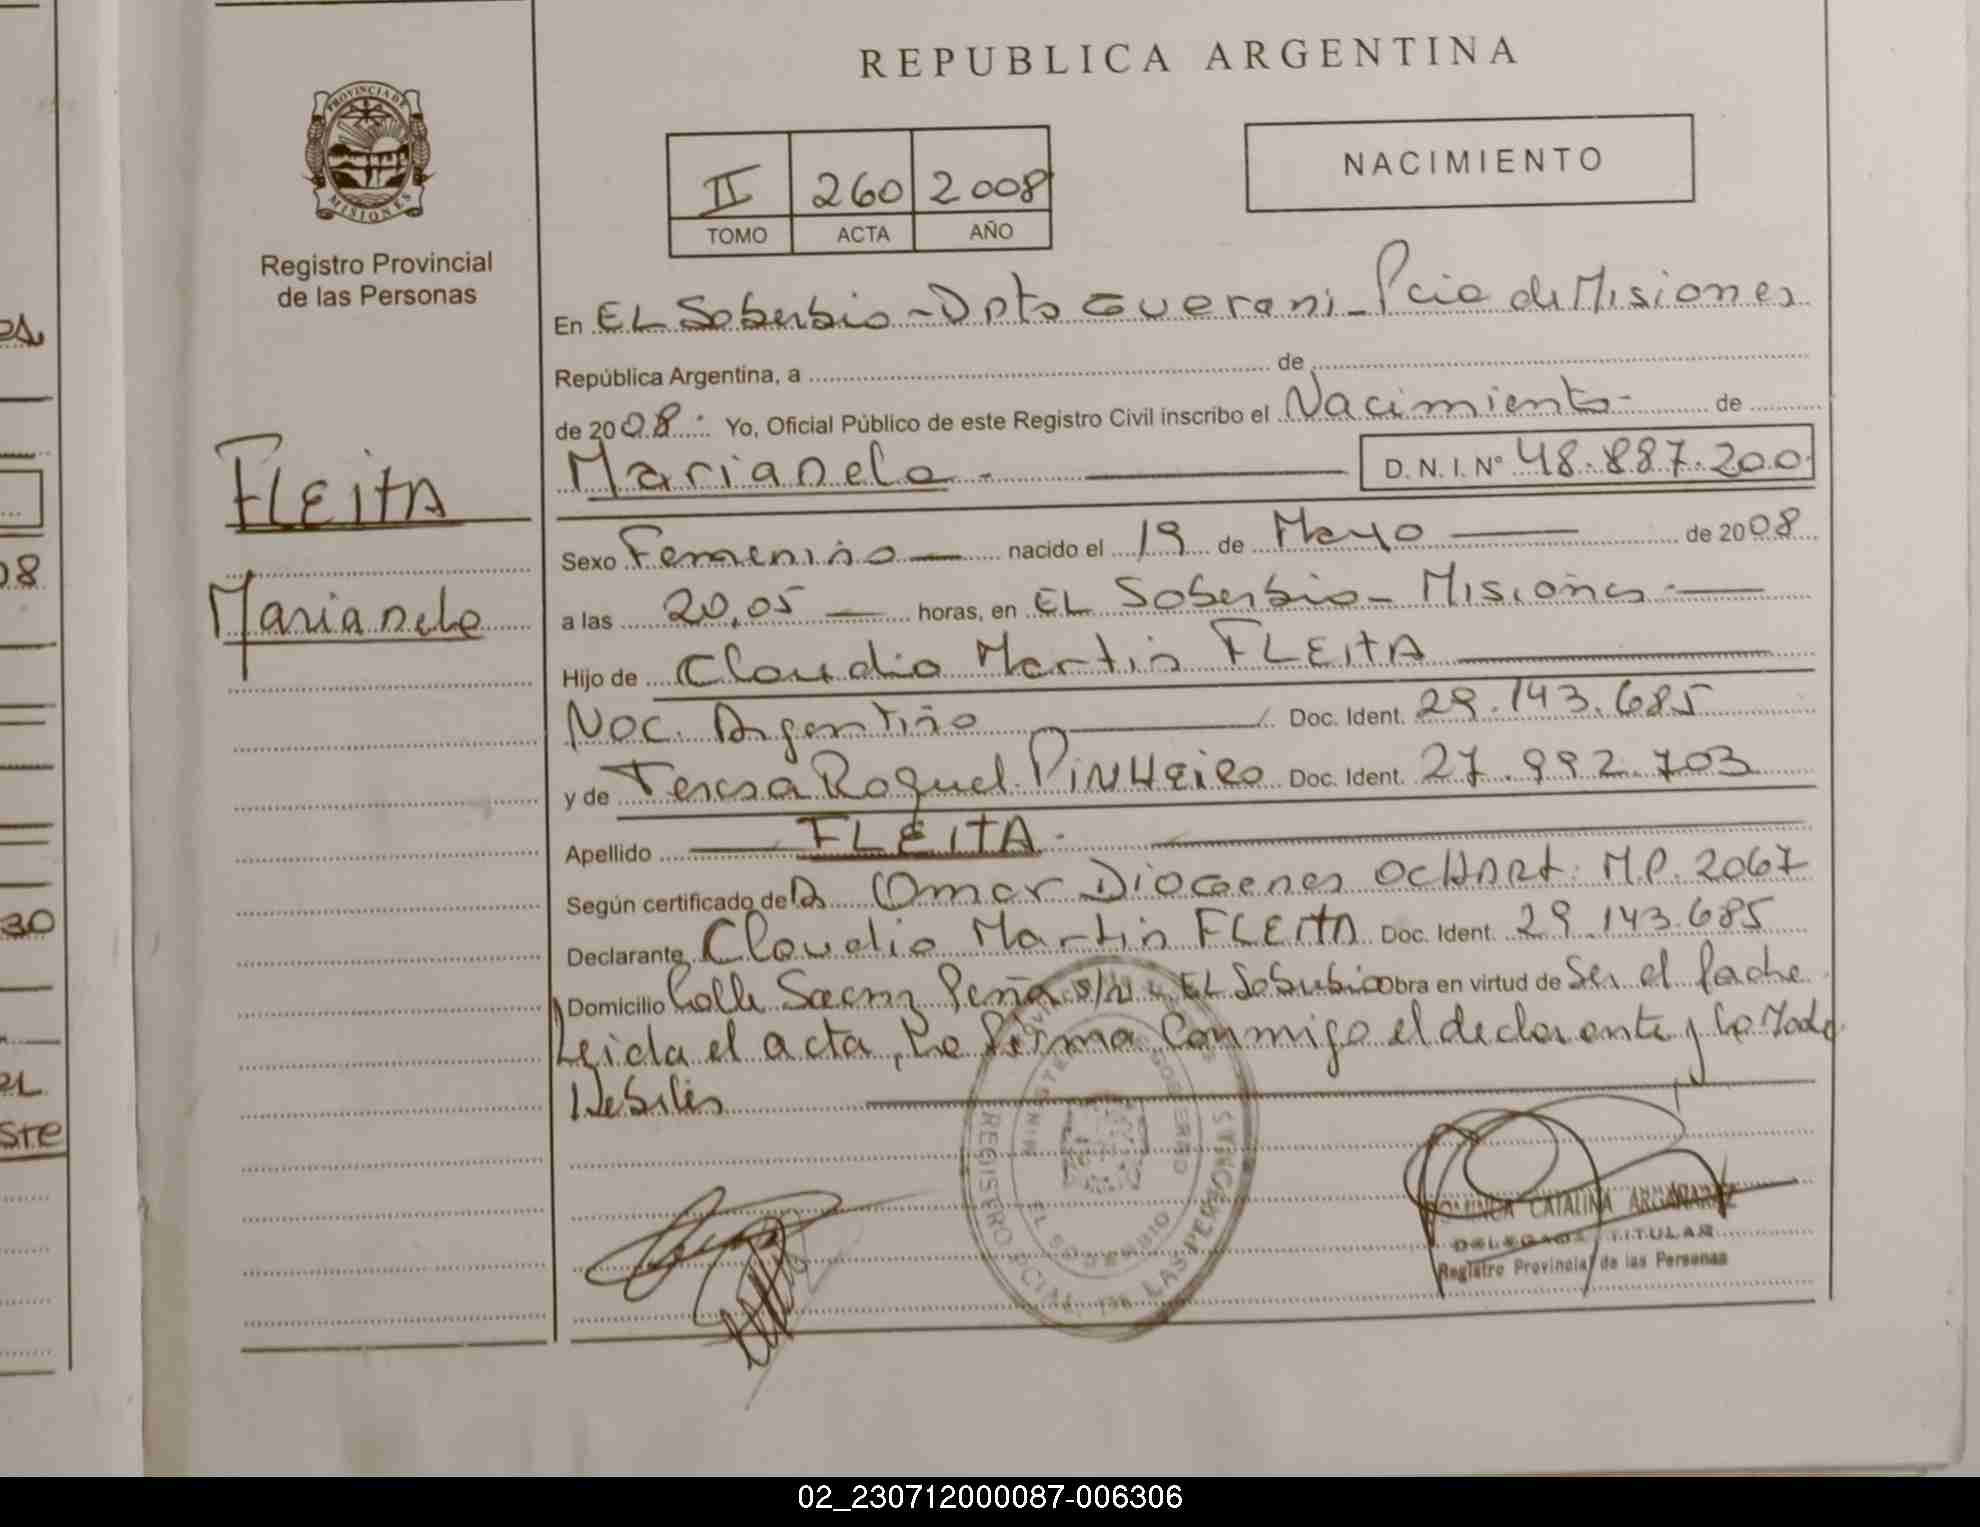 REPUBLICA ARGENTINA
PROVINCIA DE
MISIONES
Registro Provincial
de las Personas
II 260 2008
TOMO ACTA AÑO
NACIMIENTO
En EL Soberbio - Dpto Guarani - Pcia de Misiones
República Argentina, a de
de 2008 : Yo, Oficial Público de este Registro Civil inscribo el Nacimiento - de
Marianela - D.N.I.Nº 48.887.200
FLEITA
Marianela
Sexo Femenino nacido el 19 de Mayo de 2008
a las 20,05 horas, en EL Soberbio - Misiones -
Hijo de Claudio Martin FLEITA
Nac. Argentino Doc. Ident. 29.143.685
y de Teresa Raquel PINHEIRO Doc. Ident. 27.992.703
Apellido FLEITA -
Según certificado de Dr Omar Diogenes OCHART. M.P. 2067
Declarante Claudio Martin FLEITA Doc. Ident. 29.143.685
Domicilio Calle Saenz Peña s/n EL Soberbio Obra en virtud de Ser el Padre
Leida el acta, la firma conmigo el declarante y la Madre
MINISTERIO DE GOBIERNO
REGISTRO PCIAL. DE LAS PERSONAS
EL SOBERBIO
CATALINA ARGAÑARAZ
DELEGADA TITULAR
Registro Provincial de las Personas
08
30
02_230712000087-006306